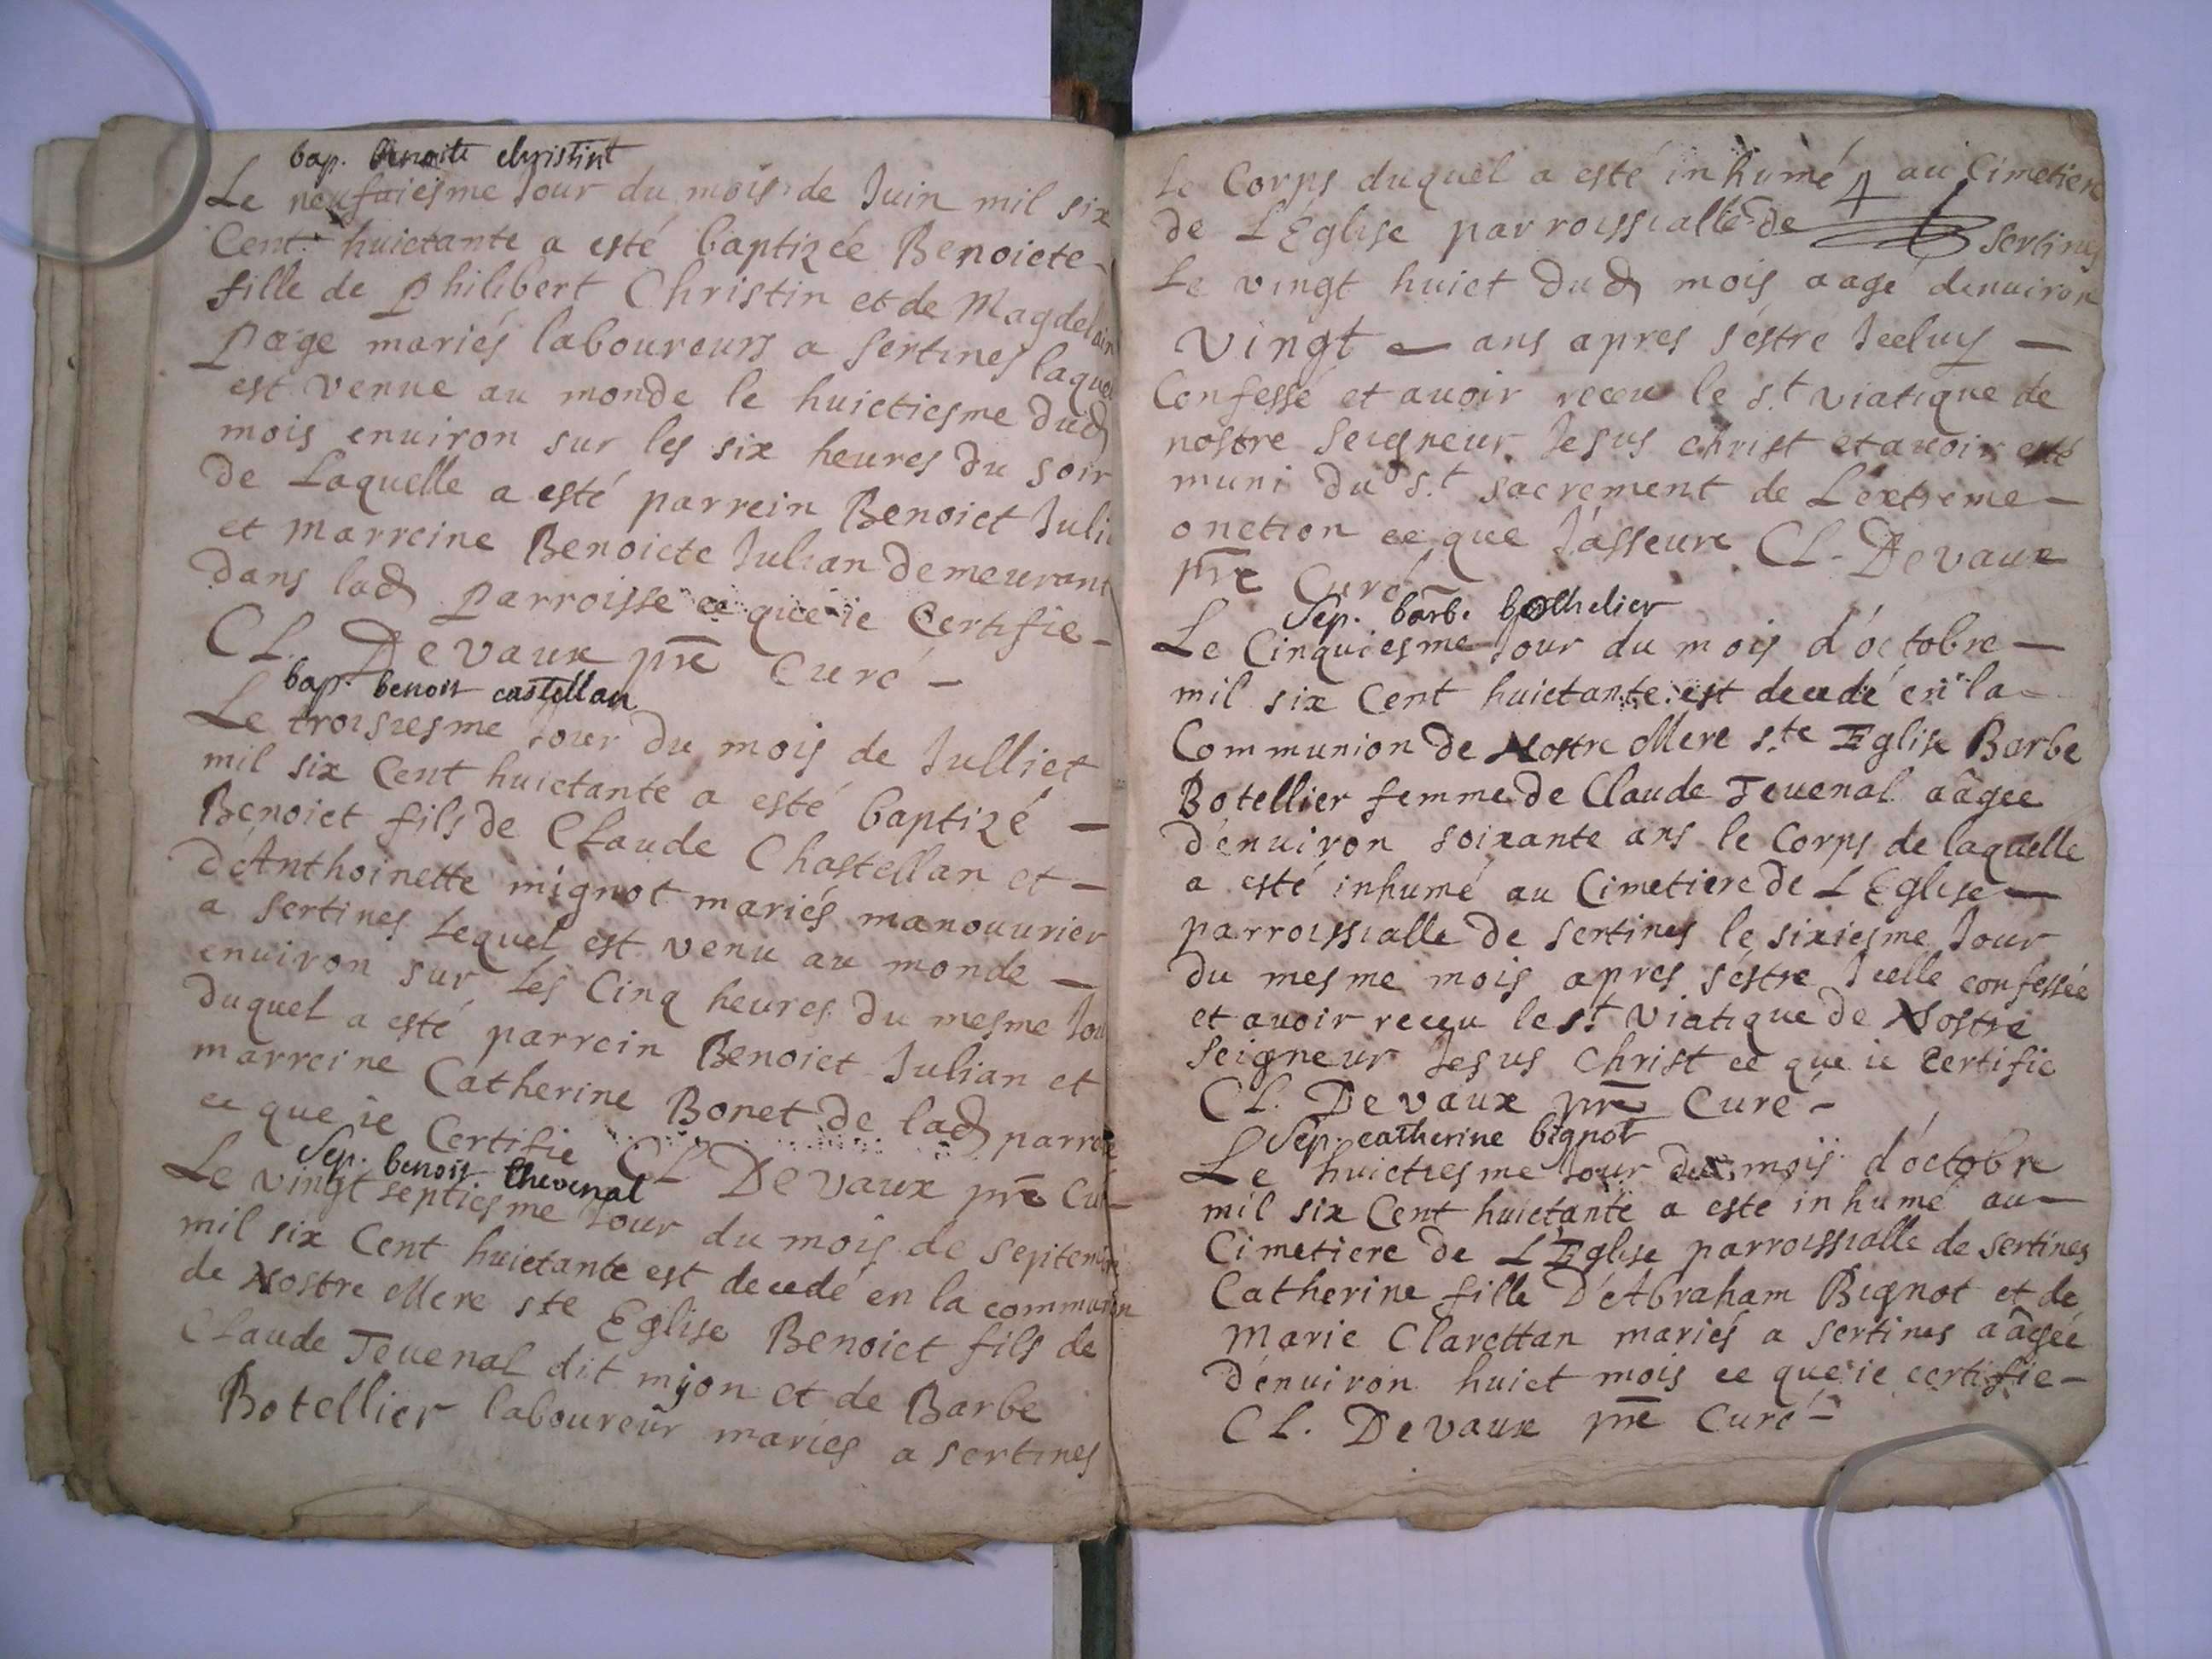 bap. benoite christint
Le neufuiesme Jour du mois de Juin mil six
Cent huictante a esté baptizée Benoicte
fille de Philibert Christin et de Magdelain
page mariés laboureurs a Sertines laquel
est venue au monde le huictiesme dud
mois enuiron sur les six heures du soir
de Laquelle a esté parrein Benoict Juli
et marreine Benoicte Julian demeurant
dans lad parroisse ce que ie Certifie -
CL. Devaux pre Curé -
bap. benoit castellan
Le troisiesme Jour du mois de Julliet
mil six Cent huictante a esté baptizé -
Benoict fils de Claude Chastellan et -
d'Anthoinette mignot mariés manouurier
a sertines Lequel est venu au monde -
enuiron sur Les Cinq heures du mesme Jou
duquel a esté parrein Benoict Julian et
marreine Catherine Bonet de lad parroi
ce que ie Certifie CL Devaux pre Cu
Sep. benoit thevenal
Le vingt septiesme Jour du mois de septemb
mil six Cent huictante est decedé en la communion
de Nostre Mere ste Eglise Benoict fils de
Claude Teuenal dit mijon et de Barbe
Botellier laboureur mariés a sertines
Le Corps duquel a esté inhumé au Cimetiere
de L'Eglise parroissialle de Sertines
Le vingt huict dud mois aagé denuiron
vingt - ans apres s'estre Iceluy -
Confessé et auoir receu le s.t viatique de
nostre Seigneur Jesus christ et auoir esté
muni du s.t sacrement de L'extreme -
onction ce que J'asseure CL. Devaux
pre Curé
Sep. barbe bothelier
Le Cinquiesme Jour du mois d'octobre -
mil six Cent huictante est decedé en la -
Communion de Nostre Mere s.te Eglise Barbe
Botellier femme de Claude Teuenal aâgee
d'enuiron soixante ans le Corps de laquelle
a esté inhumé au Cimetiere de L'Eglise -
parroissialle de sertines le sixiesme Jour
du mesme mois apres s'estre Icelle confessée
et auoir receu le s.t Viatique de Nostre
seigneur Jesus Christ ce que ie Certifie
CL. Devaux pre Curé -
Sep. catherine bignot
Le huictiesme Jour du mois d'octobre
mil six Cent huictante a esté inhumé au -
Cimetiere de L'Eglise parroissialle de Sertines
Catherine fille D'Abraham Bignot et de
Marie Clarettan mariés a sertines aâgée
d'enuiron huict mois ce que ie certifie -
CL. Devaux pre Curé -